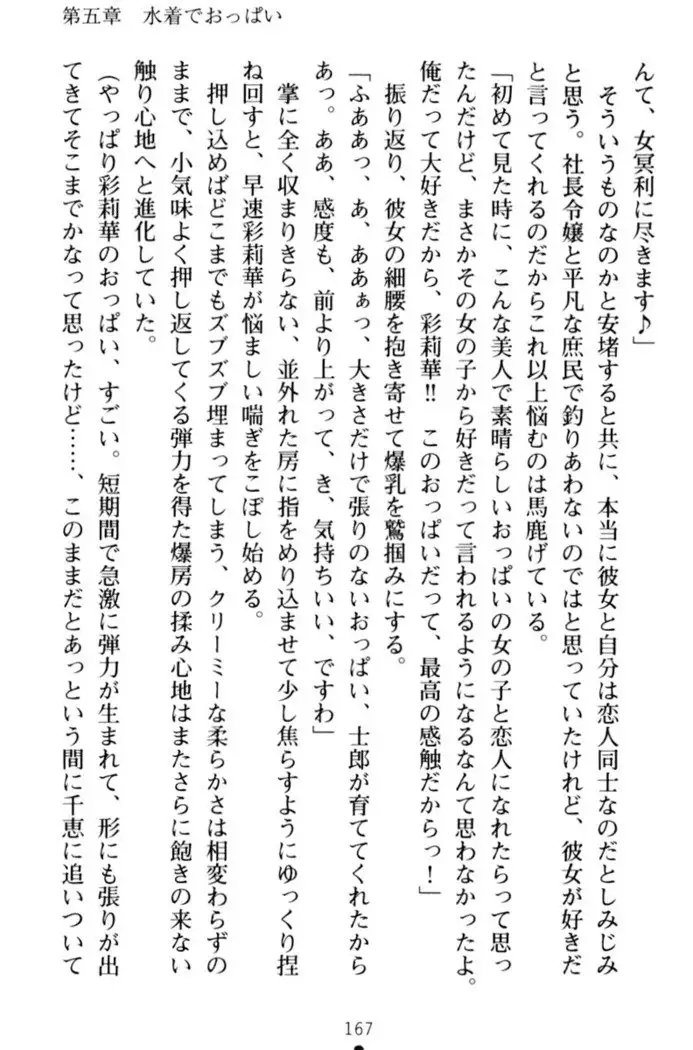 第五章　水着でおっぱい
んて、女冥利に尽きます♪」
　そういうものなのかと安堵すると共に、本当に彼女と自分は恋人同士なのだとしみじみ
と思う。社長令嬢と平凡な庶民で釣りあわないのではと思っていたけれど、彼女が好きだ
と言ってくれるのだからこれ以上悩むのは馬鹿げている。
「初めて見た時に、こんな美人で素晴らしいおっぱいの女の子と恋人になれたらって思っ
たんだけど、まさかその女の子から好きだって言われるようになるなんて思わなかったよ。
俺だって大好きだから、彩莉華‼　このおっぱいだって、最高の感触だからっ！」
　振り返り、彼女の細腰を抱き寄せて爆乳を鷲掴みにする。
「ふああっ、あ、ああぁっ、大きさだけで張りのないおっぱい、士郎が育ててくれたから
あっ。ああ、感度も、前より上がって、き、気持ちいい、ですわ」
　掌に全く収まりきらない、並外れた房に指をめり込ませて少し焦らすようにゆっくり捏
ね回すと、早速彩莉華が悩ましい喘ぎをこぼし始める。
　押し込めばどこまでもズブズブ埋まってしまう、クリーミーな柔らかさは相変わらずの
ままで、小気味よく押し返してくる弾力を得た爆房の揉み心地はまたさらに飽きの来ない
触り心地へと進化していた。
（やっぱり彩莉華のおっぱい、すごい。短期間で急激に弾力が生まれて、形にも張りが出
てきてそこまでかなって思ったけど……、このままだとあっという間に千恵に追いついて
167